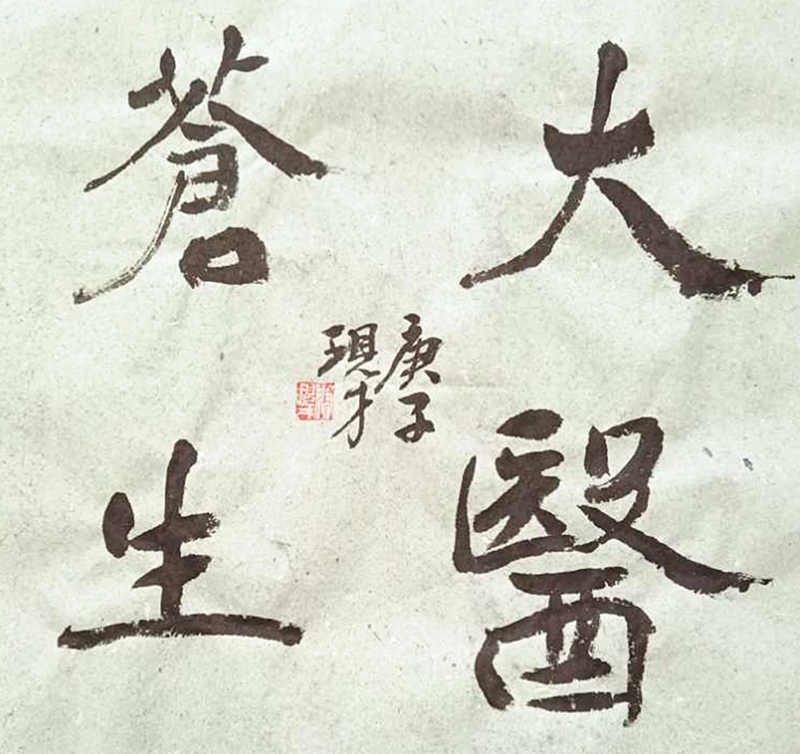 大醫
蒼生
庚子
現才